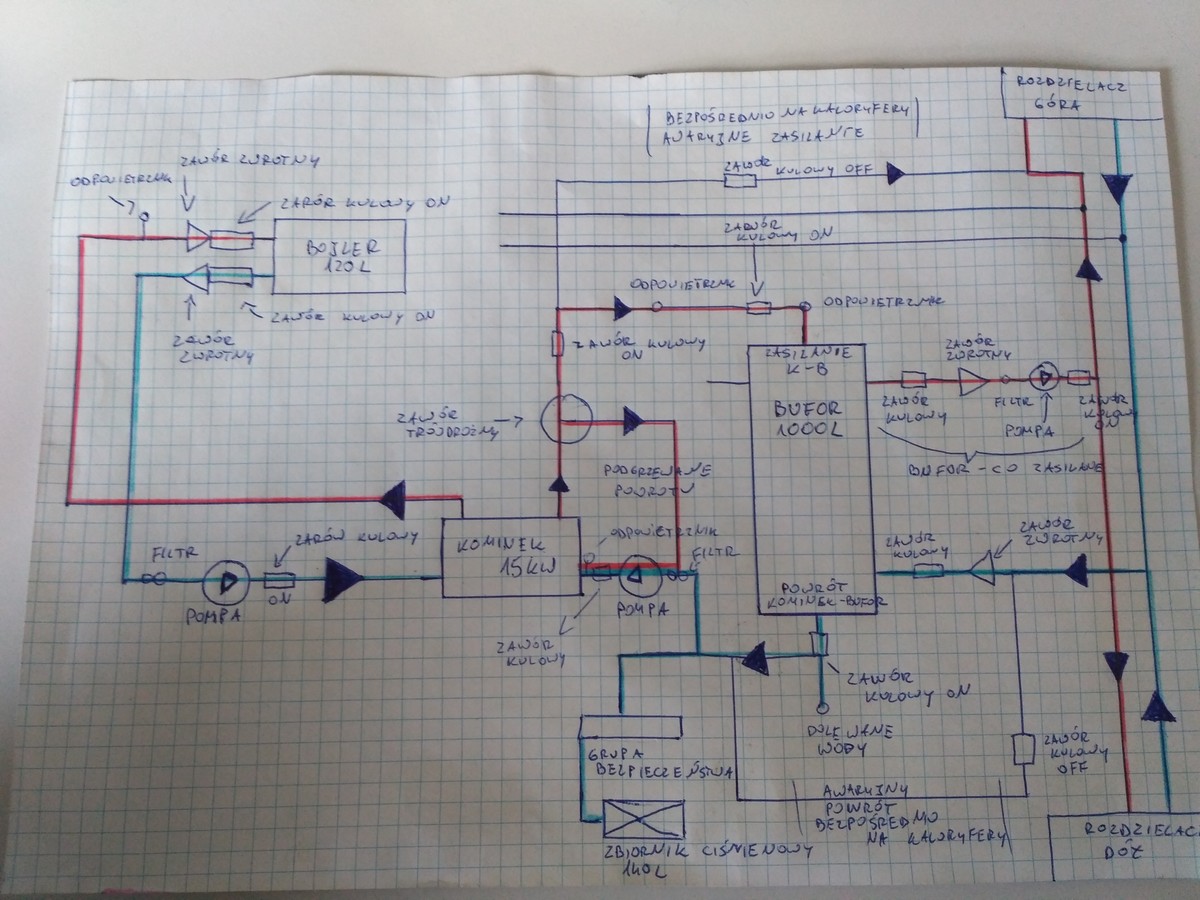 ROZDZIELACZ
GÓRA
BEZPOŚREDNIO NA KALORYFERY
AWARYJNE ZASILANIE
ZAWÓR
KULOWY OFF
ZAWÓR ZWROTNY
ODPOWIETRZNIK
ZAWÓR KULOWY ON
BOJLER
120L
ZAWÓR KULOWY ON
ZAWÓR
ZWROTNY
ZAWÓR
KULOWY ON
ODPOWIETRZNIK
ODPOWIETRZNIK
ZAWÓR KULOWY
ON
ZASILANIE
K-B
BUFOR
1000L
ZAWÓR
ZWROTNY
ZAWÓR
KULOWY
FILTR
POMPA
ZAWÓR
KULOWY
ON
BUFOR - CO ZASILANIE
ZAWÓR
TRÓJDROŻNY
PODGRZEWANIE
POWROTU
ODPOWIETRZNIK
FILTR
KOMINEK
15KW
POMPA
ZAWÓR
KULOWY
FILTR
POMPA
ZAWÓR KULOWY
ON
ZAWÓR
KULOWY
ZAWÓR
ZWROTNY
POWRÓT
KOMINEK-BUFOR
ZAWÓR
KULOWY ON
DOLEWANIE
WODY
GRUPA
BEZPIECZEŃSTWA
ZBIORNIK CIŚNIENOWY
140L
AWARYJNY
POWRÓT
BEZPOŚREDNIO
NA KALORYFERY
ZAWÓR
KULOWY
OFF
ROZDZIELACZ
DÓŁ